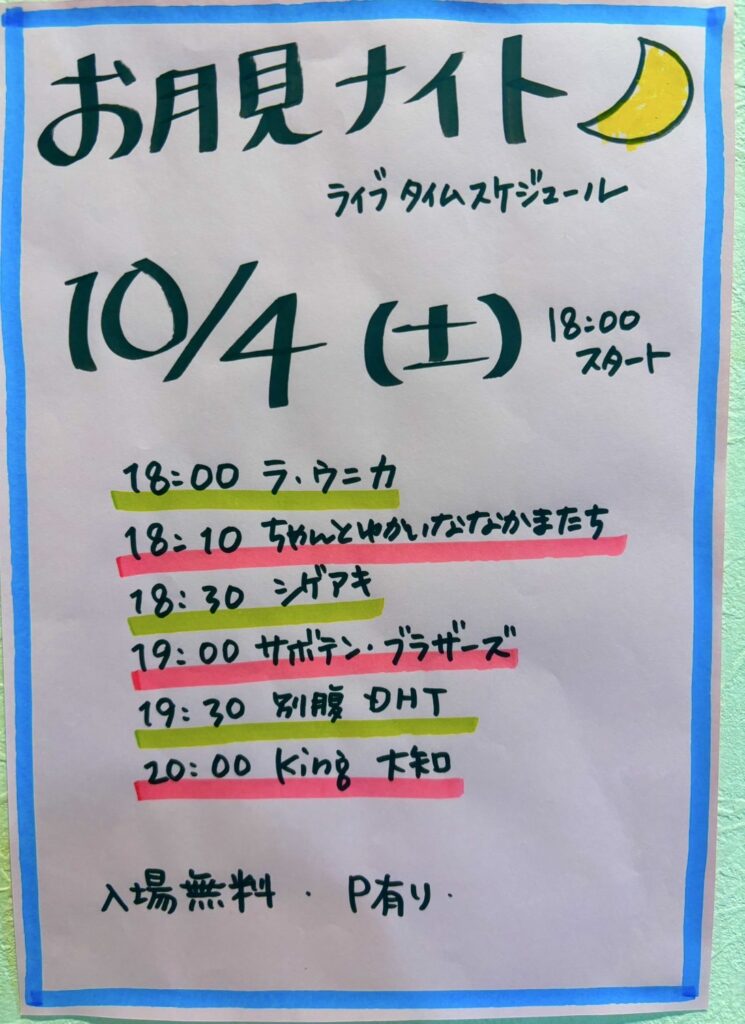 お月見ナイト
ライブ タイムスケジュール
10/4 (土) 18:00
スタート
18:00 ラ・ウニカ
18:10 ちゃんとゆかいななかまたち
18:30 シゲアキ
19:00 サボテン・ブラザーズ
19:30 別腹 DHT
20:00 King 大知
入場無料 ・ P有り・